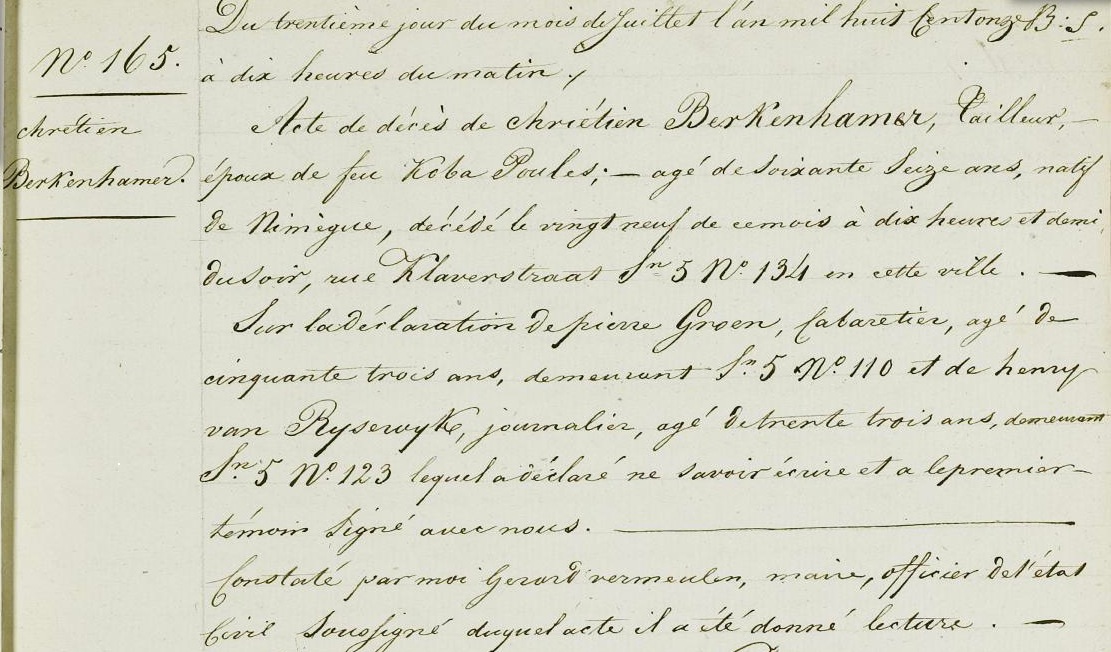 Du trentième jour du mois de Juillet l'an mil huit Cent onze B:S.
Nº 165.
à dix heures du matin ./
chrétien
Acte de décès de chriétien Berkenhamer, Tailleur, —
Berkenhamer.
époux de feu Koba Poules; — agé de soixante Seize ans, natif
de Nimègue, décédé le vingt neuf de ce mois à dix heures et demi
du soir, rue Klaverstraat Sn 5 Nº 134 en cette ville . —
Sur la déclaration de pierre Groen, Cabaretier, agé de
cinquante trois ans, demeurant Sn. 5 Nº. 110 et de henry
van Rysewyk, journalier, agé de trente trois ans, demeurant
Sn. 5 Nº. 123 lequel a déclaré ne savoir écrire et a le premier –
témoin Signé avec nous. —
Constaté par moi Gerard vermeulen, maire, officier de l'état
Civil Soussigné duquel acte il a été donné lecture . —